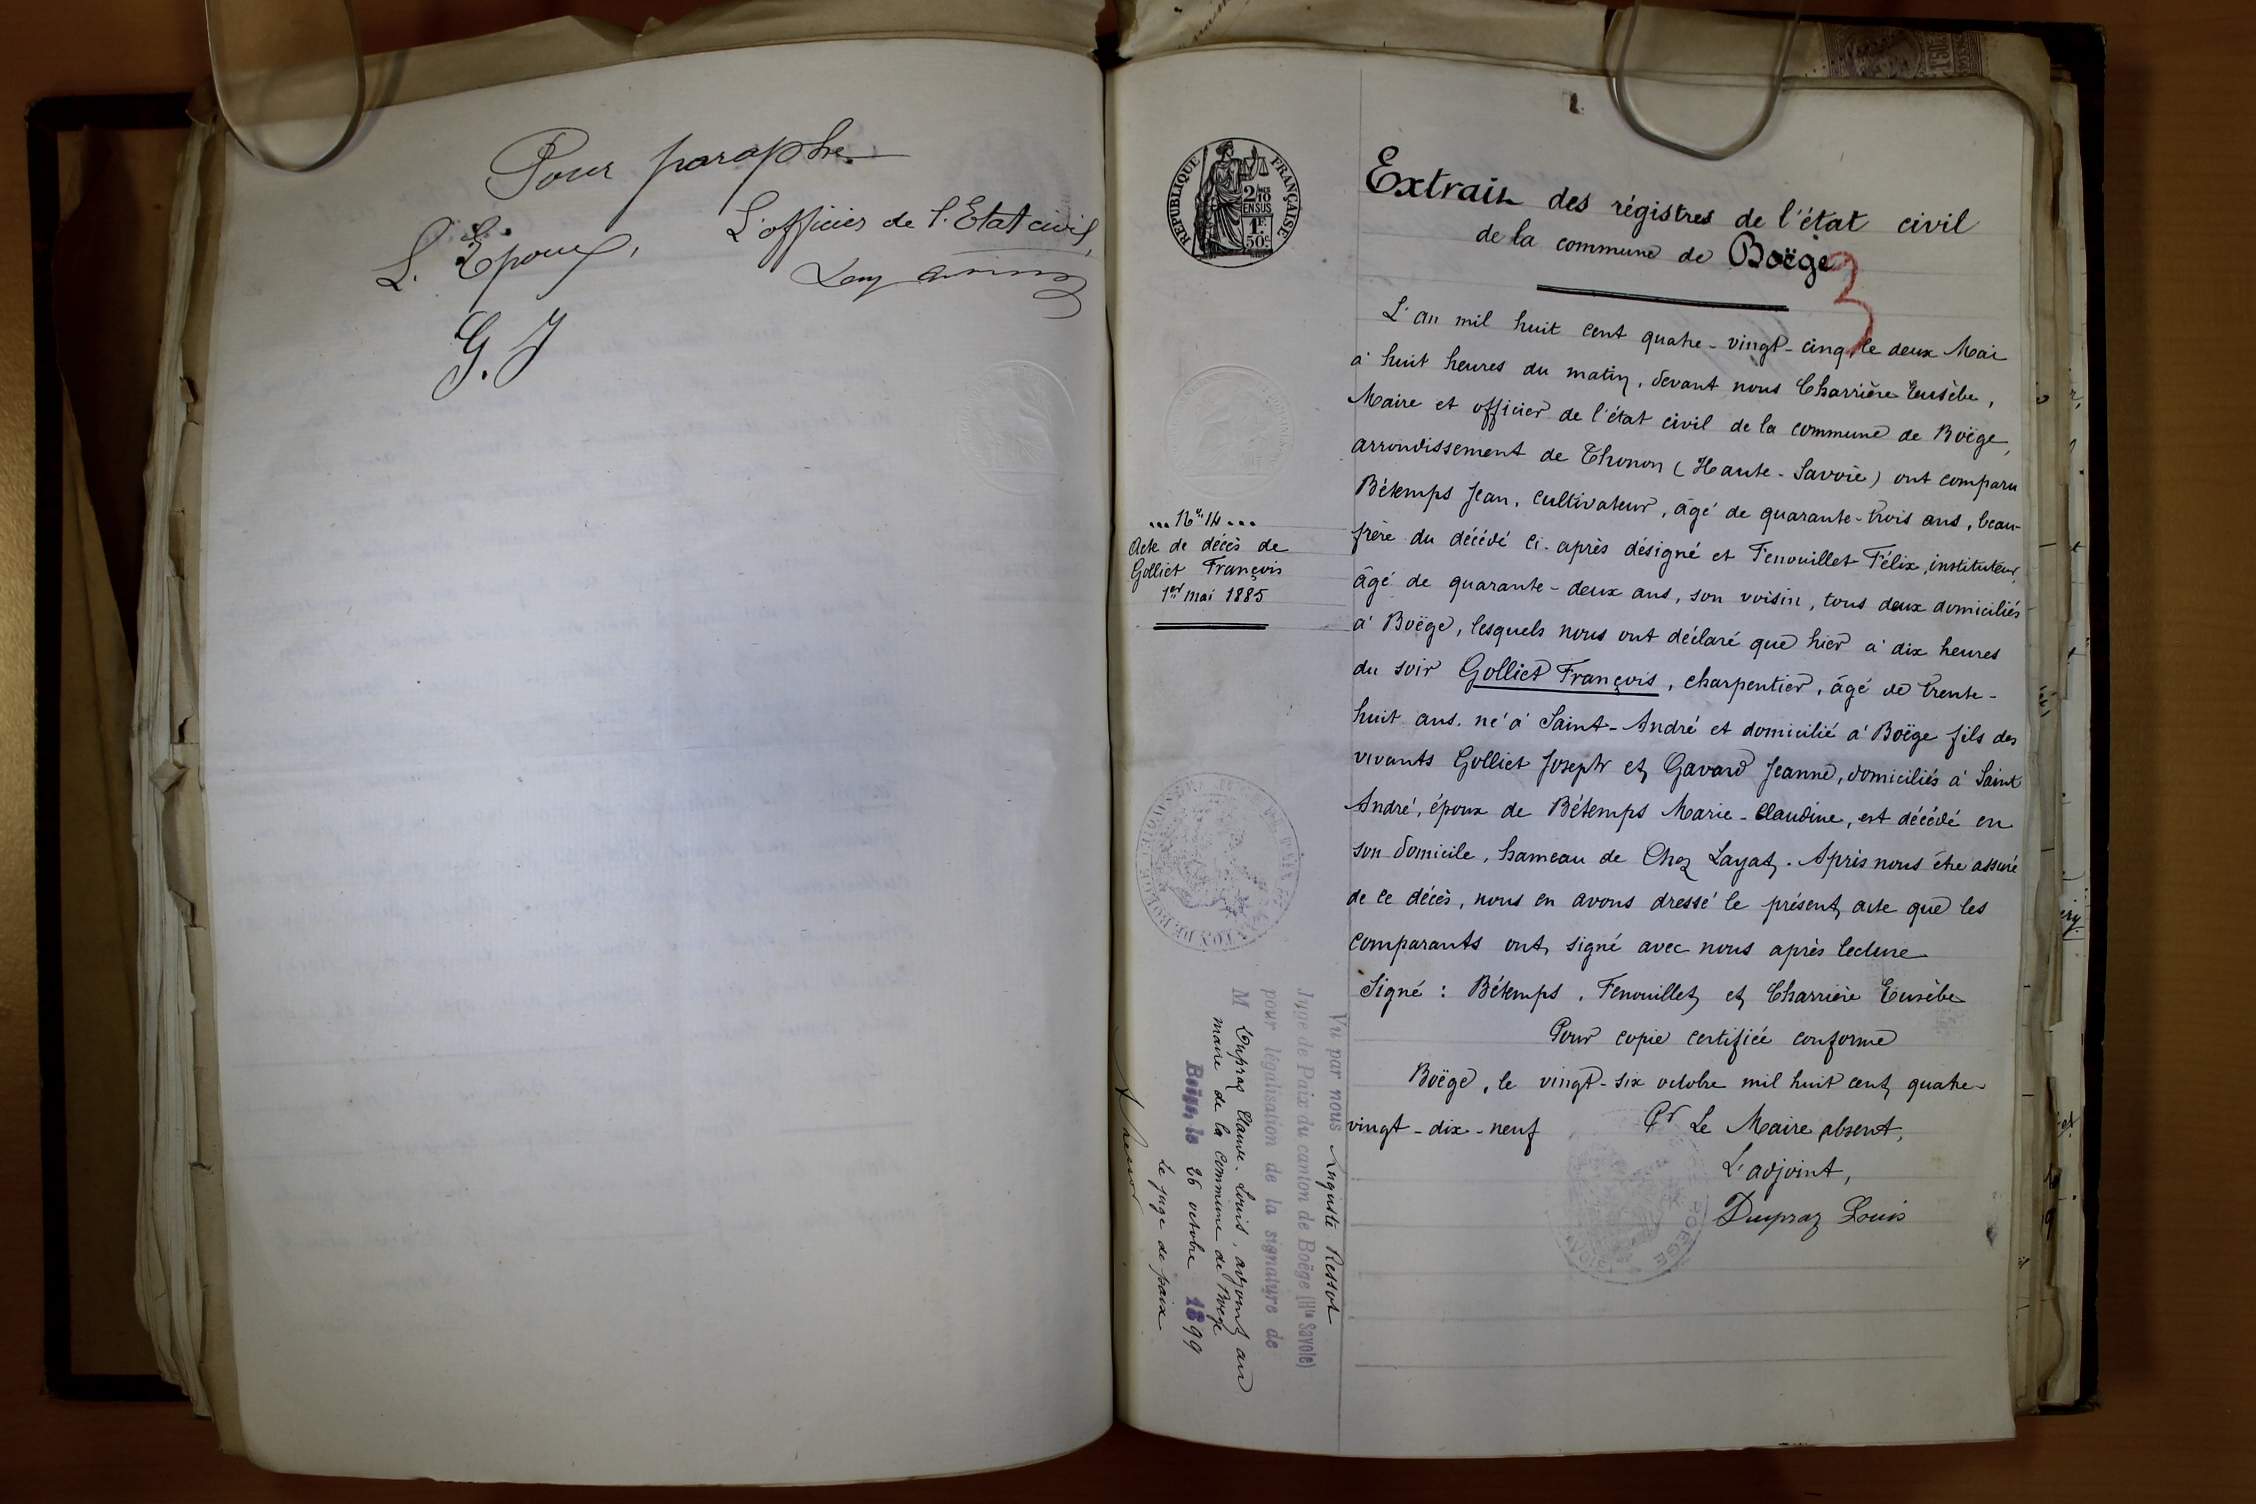 Pour paraphe
L'Epoux,
L'officier de l'Etat civil,
G. J
RÉPUBLIQUE FRANÇAISE
2/10
EN SUS
1F
50c
Extrait des régistres de l'état civil
de la commune de Boëge
3
L'an mil huit cent quatre-vingt-cinq, le deux Mai
à huit heures du matin, devant nous Charrière Eusèbe,
Maire et officier de l'état civil de la commune de Boëge,
arrondissement de Thonon (Haute-Savoie) ont comparu
Bétemps Jean, cultivateur, âgé de quarante-trois ans, beau-
frère du décédé ci-après désigné et Fenouillet Félix, instituteur,
âgé de quarante-deux ans, son voisin, tous deux domiciliés
à Boëge, lesquels nous ont déclaré que hier à dix heures
du soir Golliet François, charpentier, âgé de trente-
huit ans, né à Saint-André et domicilié à Boëge fils des
vivants Golliet Joseph et Gavard Jeanne, domiciliés à Saint
André, époux de Bétemps Marie-Claudine, est décédé en
son domicile, hameau de Chez Layat. Après nous être assuré
de ce décès, nous en avons dressé le présent acte que les
comparants ont signé avec nous après lecture
Signé : Bétemps, Fenouillet et Charrière Eusèbe
Pour copie certifiée conforme
Boëge, le vingt-six octobre mil huit cent quatre-
vingt-dix-neuf
Pr Le Maire absent,
L'adjoint,
Dupraz Louis
... No 14 ...
Acte de décès de
Golliet François
1er mai 1885
Vu par nous Auguste Ressot
Juge de Paix du canton de Boëge (Hte Savoie)
pour légalisation de la signature de
M Dupraz Claude-Louis, adjoint au
maire de la commune de Boëge
Boëge, le 26 octobre 1899
Le juge de paix